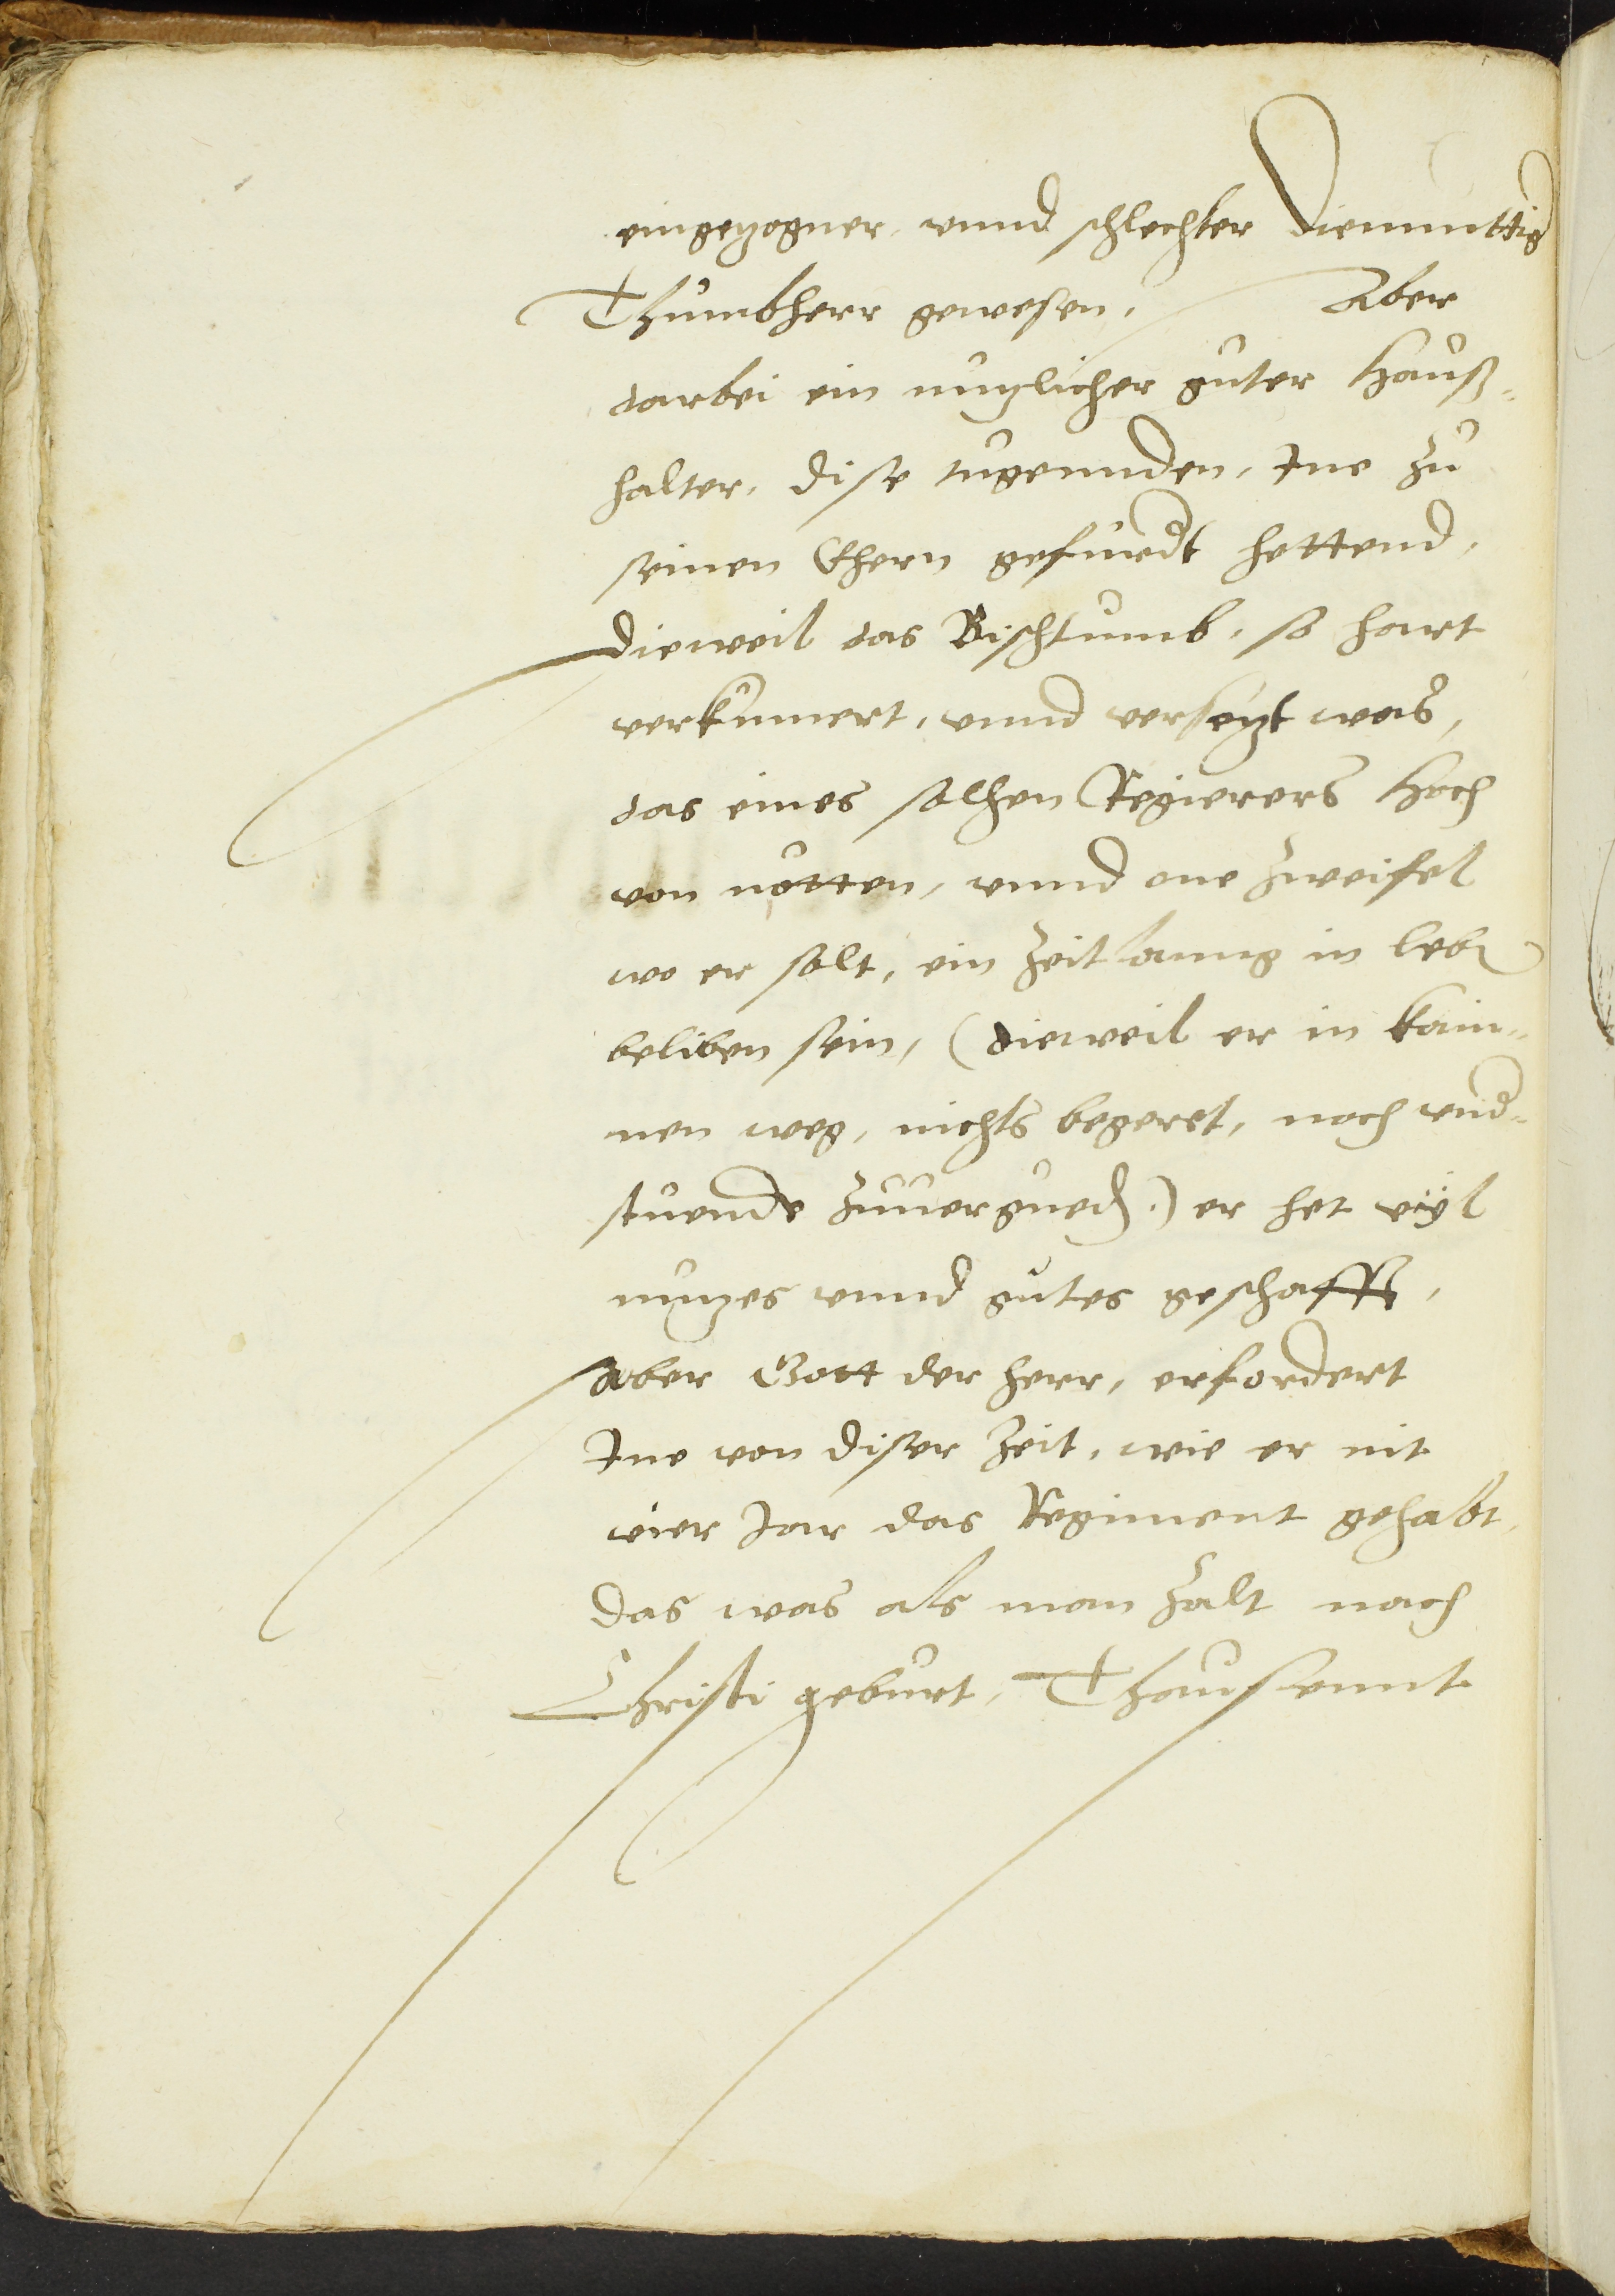 eingezogner, vnnd schlechter Diemuttig
Thumbherr gewesen, Aber
darbei ein nutzlicher guter Hauß¬
halter, dise tugennden, Ine zu
seinen Ehern gefuedt hettend,
dieweil das Bischtumb, so hart
verkumert, vnnd versetzt was,
das eines solhen Regierers Hoch
von nötten, vnnd one Zweifel
wo er solt, ein Zeitlanng in leb
beliben sein, (dieweil er in kain¬
nen weg, nichts begeret, noch vnd¬
stuende Zuuergueden.) er het vÿl
nutzes vnnd gutes geschafft,
Aber Gott der herr, erfordert
Ine von diser Zeit, wie er nit
vier Jar das Regiment gehabt,
Das was als man Zalt nach
Christi geburt, Thausennt